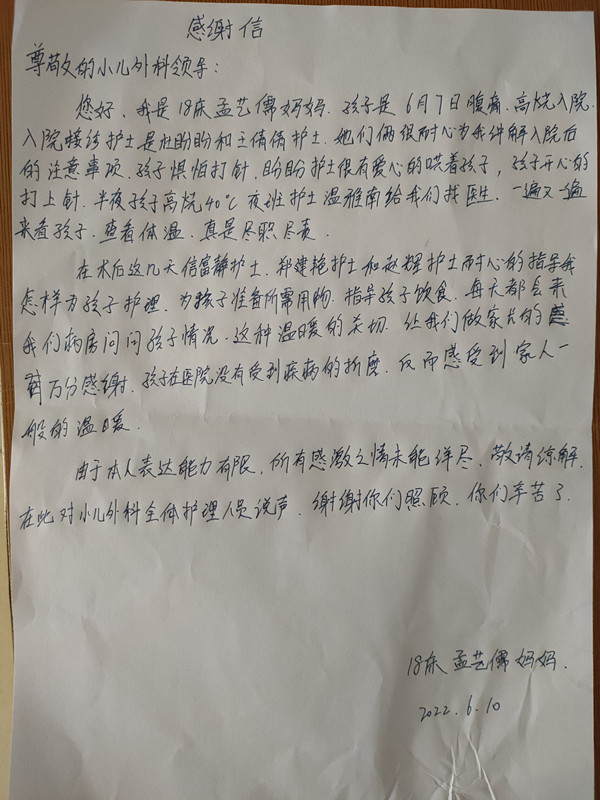 感谢信
尊敬的小儿外科领导：
您好、我是18床孟艺儒妈妈．孩子是6月7日腹痛．高烧入院．
入院接诊护士是杜盼盼和王倩倩护士．她们俩很耐心为我讲解入院后
的注意事项．孩子惧怕打针．盼盼护士很有爱心的哄着孩子，孩子开心的
打上针．半夜孩子高烧40℃夜班护士温雅南给我们找医生．一遍又一遍
来看孩子．查看体温．真是尽职尽责．
在术后这几天信富静护士．郑建艳护士和赵辉护士耐心的指导我
怎样为孩子护理．为孩子准备所需用物．指导孩子饮食．每天都会来
我们病房问问孩子情况．这种温暖的关切．让我们做家长的
万分感谢．孩子在医院没有受到疾病的折磨．反而感受到家人一
般的温暖．
由于本人表达能力有限．所有感激之情未能详尽．敬请谅解．
在此对小儿外科全体护理人员说声．谢谢你们照顾．你们辛苦了．
18床孟艺儒妈妈．
2022.6.10